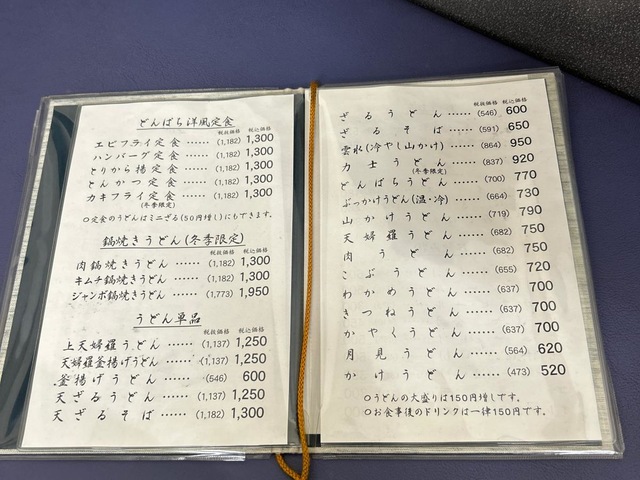 どんばち洋風定食
税抜価格 税込価格
エビフライ定食……(1,182) 1,300
ハンバーグ定食……(1,182) 1,300
とりから揚定食……(1,182) 1,300
とんかつ定食……(1,182) 1,300
カキフライ定食……(1,182) 1,300
(冬季限定)
○定食のうどんはミニざる(50円増し)にもできます。
鍋焼きうどん(冬季限定)
税抜価格 税込価格
肉鍋焼きうどん……(1,182) 1,300
キムチ鍋焼きうどん……(1,182) 1,300
ジャンボ鍋焼きうどん……(1,773) 1,950
うどん単品
税抜価格 税込価格
上天婦羅うどん……(1,137) 1,250
天婦羅釜揚げうどん……(1,137) 1,250
釜揚げうどん……(546) 600
天ざるうどん……(1,137) 1,250
天ざるそば……(1,182) 1,300
税抜価格 税込価格
ざるうどん……(546) 600
ざるそば……(591) 650
雲水(冷やし山かけ)……(864) 950
力士うどん……(837) 920
(冬季限定)
どんばちうどん……(700) 770
ぶっかけうどん(温・冷)……(664) 730
山かけうどん……(719) 790
天婦羅うどん……(682) 750
肉うどん……(682) 750
こぶうどん……(655) 720
わかめうどん……(637) 700
きつねうどん……(637) 700
かやくうどん……(637) 700
月見うどん……(564) 620
かけうどん……(473) 520
○うどんの大盛りは150円増しです。
○お食事後のドリンクは一律150円です。